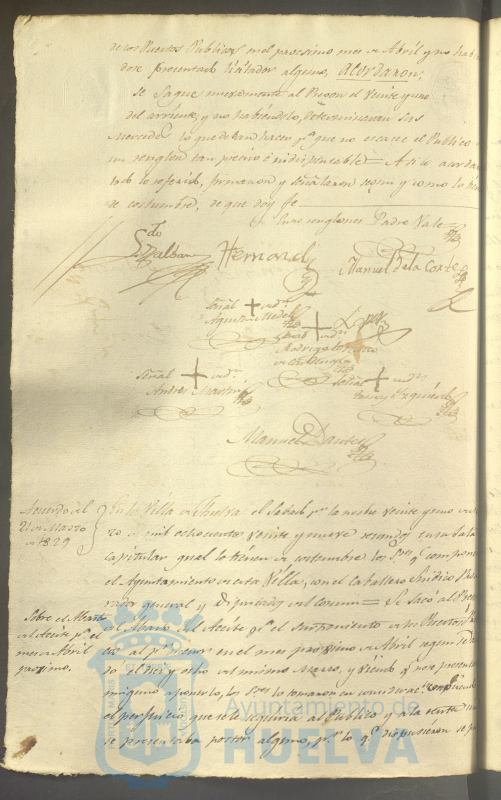 de los Puestos Publicos en el proximo mes de Abril y no hab
dose presentado licitador alguno, Acordaron;
se saque nuevamente al Pregon el veinte y uno
del corriente, y no habiendolo, determinaran sus
Mercedes lo que deban hacer pª que no escasee el Publico
un renglon tan preciso é indispensable = Asi lo acorda
lo referido, firmaron y señalaron segun y como lo tienen
de costumbre, de que doy fe
Entre renglones Padre Vale
Hernand
Manuel de la Corte
Señal + de
Agustin
Lopez
Señal + de
Rodrigo
Señal + de
Andres Martin
Señal + de
Izquierdo
Manuel
Acuerdo del
21 de Marzo
de 1829
En la Villa de Huelva el Sabado pr la noche veinte y uno de Mar
zo de mil ochocientos veinte y nueve reunidos en su Sala
capitular qual lo tienen de costumbre los Sres q componen
el Ayuntamiento de esta Villa, con el Caballero Sindico Procu
rador general y Diputados del Comun = Se saco al Pregon
Sobre el Abasto
de Aceite pª el
mes de Abril
proximo.
el Abasto del Aceite pª el surtimiento de los Puestos Publi
cos al pr menor en el mes proximo de Abril segun
do el diez y ocho del mismo Marzo, y viendo q no se presento
ninguno a ponerlo, los Sres lo tomaron en consideracion
el perjuicio que se le seguiria al Publico y a la renta
se presentaba postor alguno, pr lo q dispusieron se
Ayuntamiento de
HUELVA